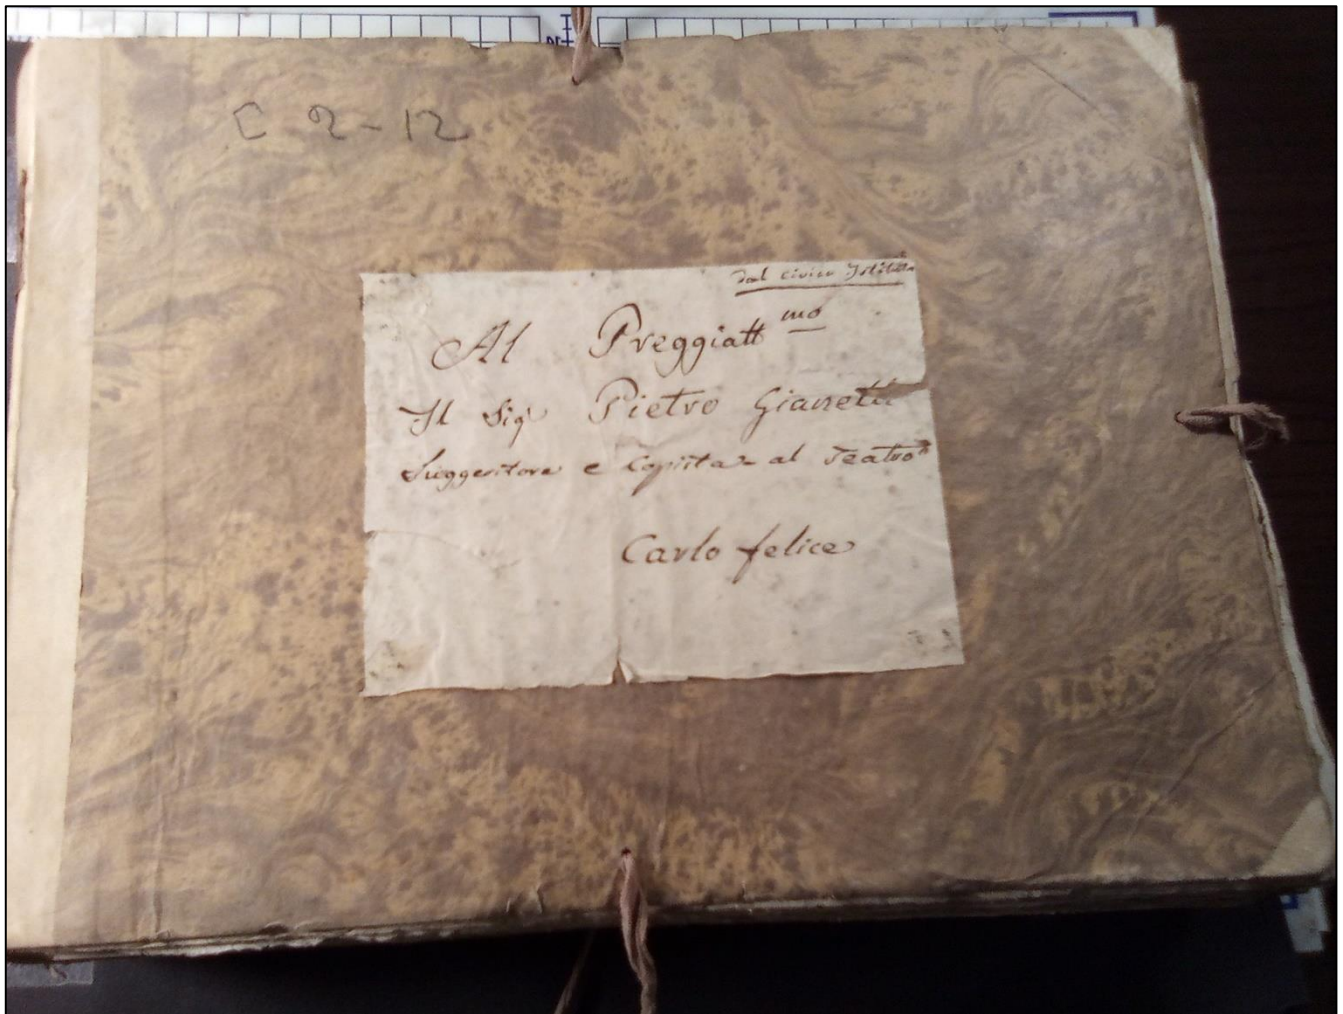 C 2-12
dal civico Istituto
Al Preggiatt mo
Il Sigr Pietro Giannetti
Suggeritore e Copista al Teatro
Carlo felice